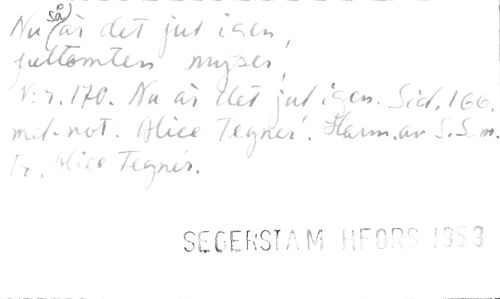 Nu så är det jul igen,
jultomten myser,
N:r. 170. Nu är det jul igen. Sid. 166.
mel-not. Alice Tegnér. Harm. av S.S.m.
Tr. Alice Tegnér.
SEGERSTAM HFORS 1953